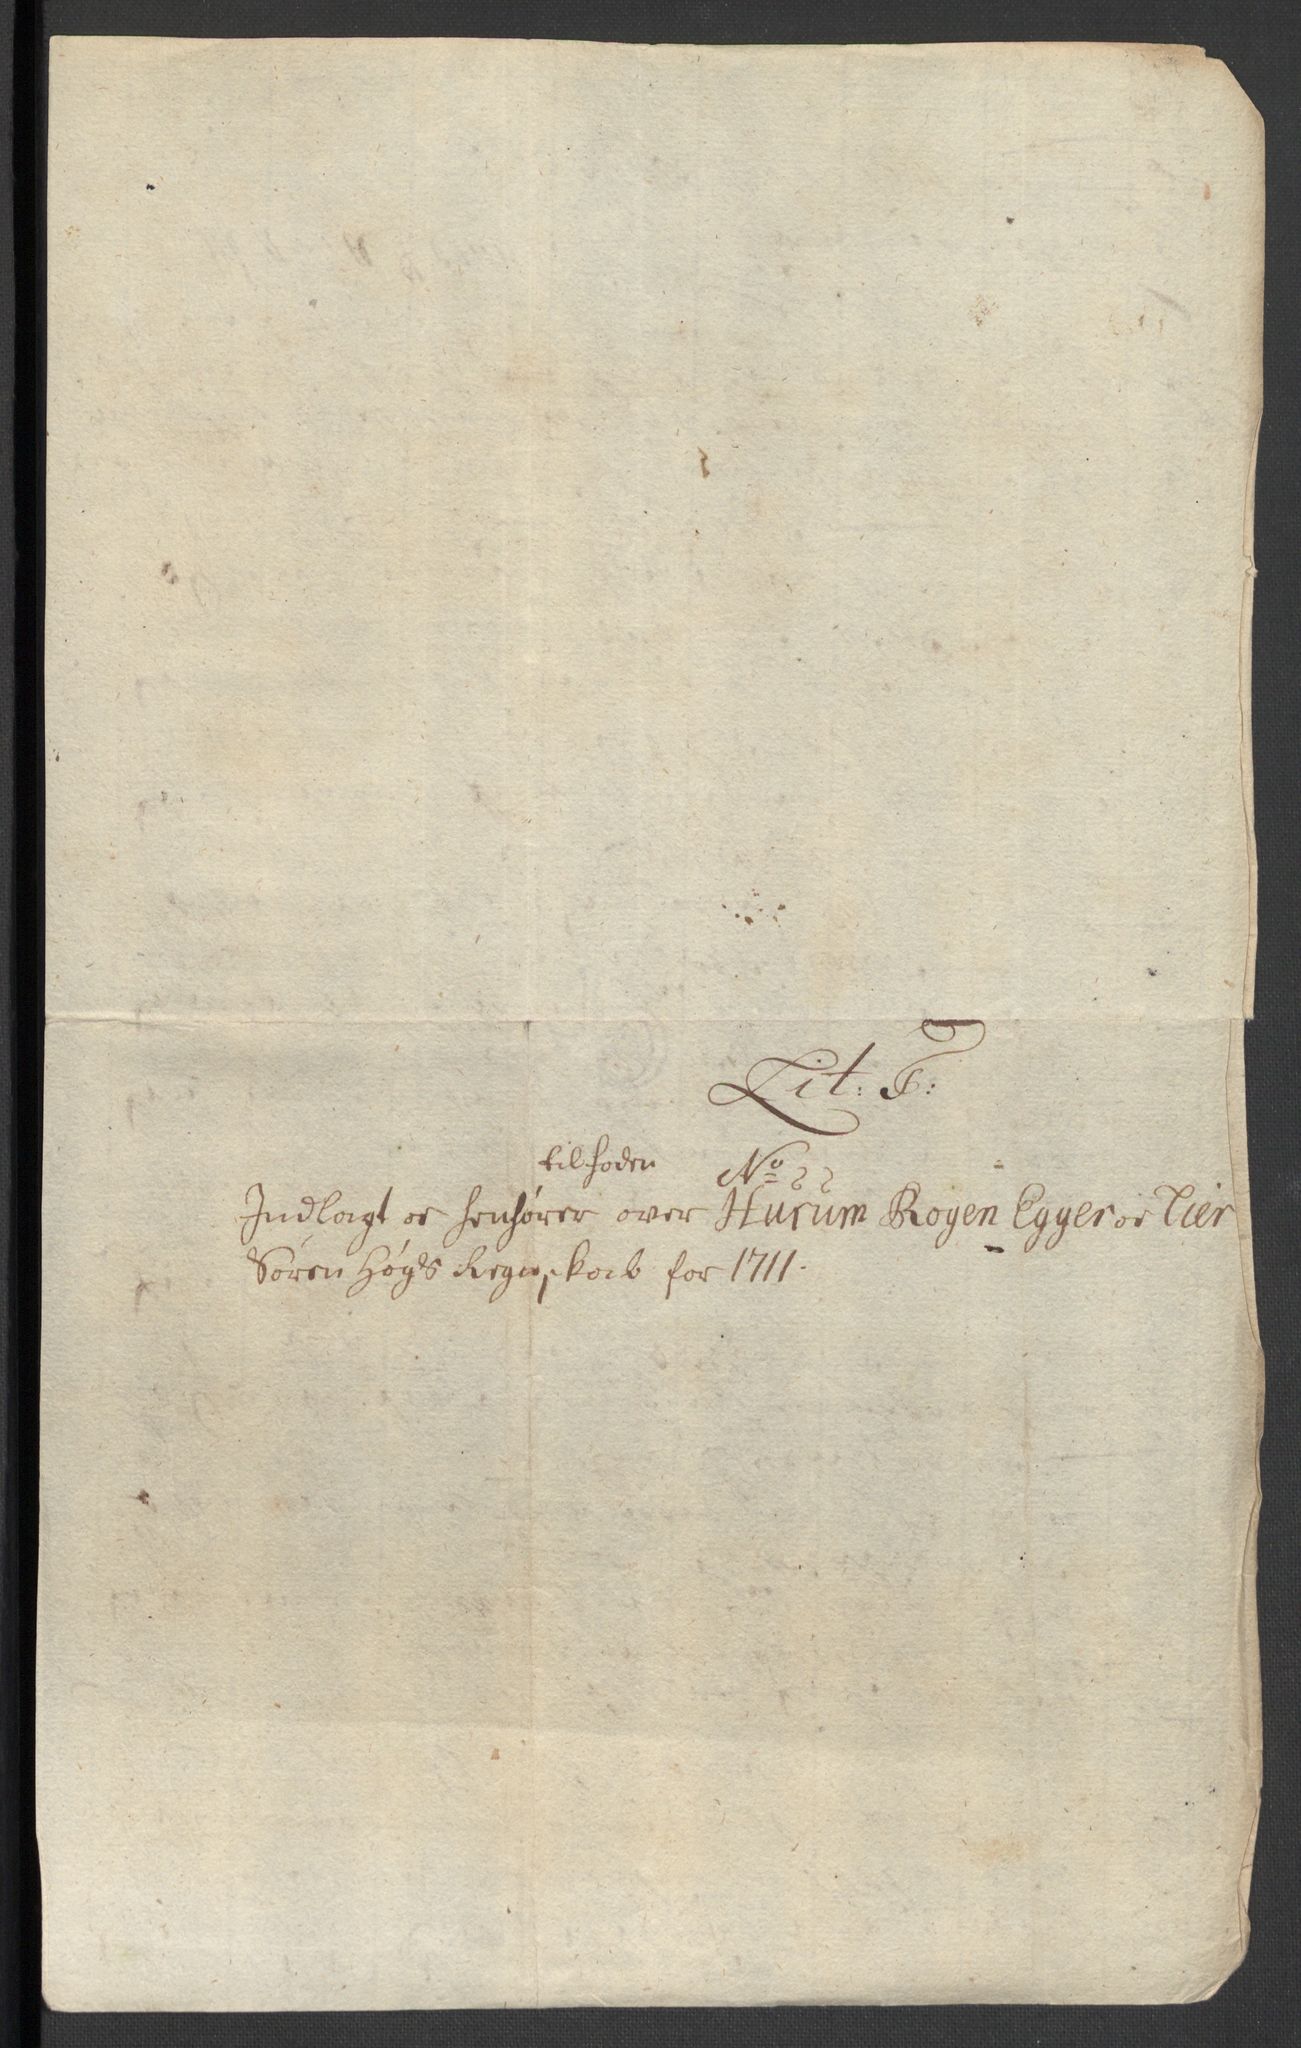 Lit: F:
til foden No 22
Indlagt oc henhører over Hurum Rogen Egger oc Lier
Søren Høg's Regnskab for 1711.